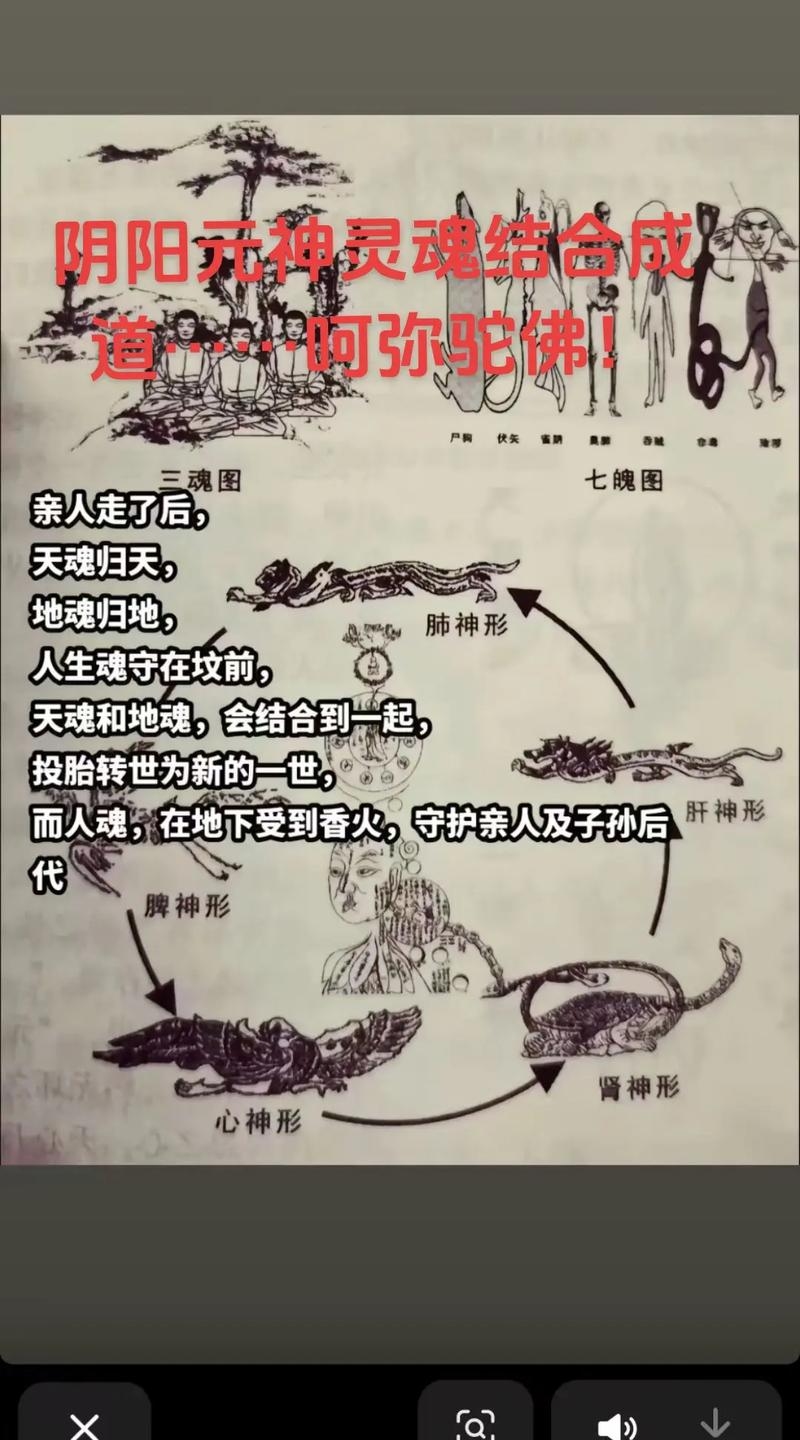 阴阳元神灵魂结合成
道……呵弥驼佛!
尸狗 伏矢 雀阴 臭肺 吞贼 非毒 除秽
三魂图
七魄图
亲人走了后，
天魂归天，
地魂归地，
人生魂守在坟前，
天魂和地魂，会结合到一起，
投胎转世为新的一世，
而人魂，在地下受到香火，守护亲人及子孙后
代
肺神形
肝神形
脾神形
心神形
肾神形